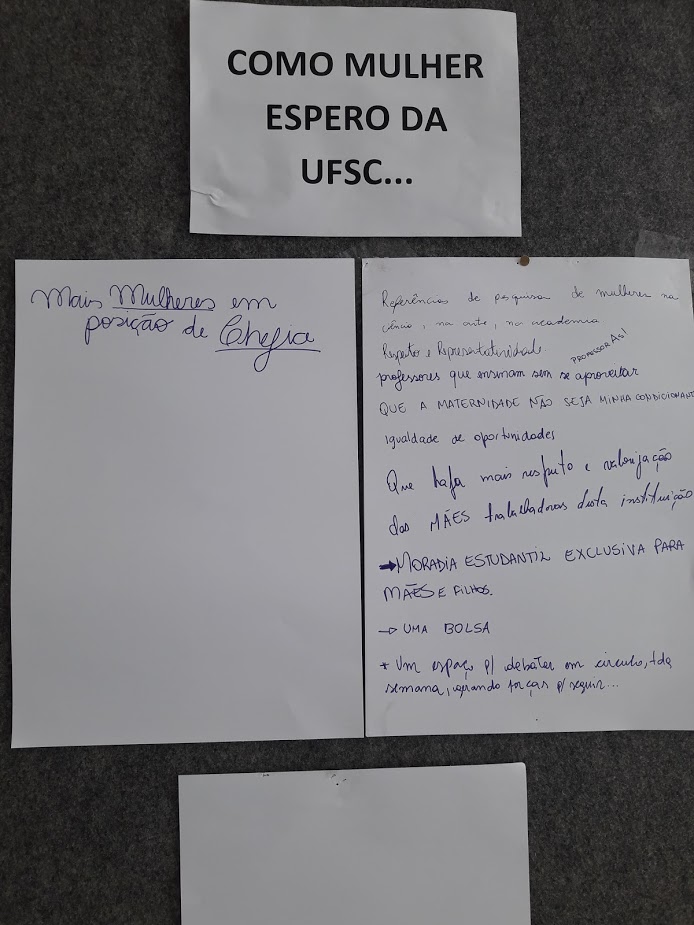 COMO MULHER
ESPERO DA
UFSC...
Mais Mulheres em
posição de Chefia
Referências de pesquisa de mulheres na
ciência, na arte, na academia
Respeito e Representatividade.
PROFESSORAS!
professores que ensinam sem se aproveitar
QUE A MATERNIDADE NÃO SEJA MINHA CONDICIONANT
igualdade de oportunidades
Que haja mais respeito e valorização
das MÃES trabalhadoras desta instituição
→ MORADIA ESTUDANTIL EXCLUSIVA PARA
MÃES E FILHOS.
→ UMA BOLSA
+ Um espaço p/ debater em círculo, tda
semana, gerando forças p/ seguir...